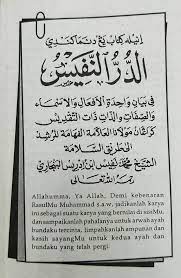 اينيله كتاب يڠ دنمأكندي
الدر النفيس
في بيان وحدة الأفعال والأسماء
والصفات والذات ذات التقديس
كارڠن مولانا العلامة الفهامة المرشد
إلى طريق السلامة
الشيخ محمد نفيس بن ادريس البنجاري
Allahumma, Ya Allah, Demi kebenaran
RasulMu Muhammad s.a.w, jadikanlah karya
ini sebagai suatu karya yang bernilai di sisiMu,
dan sampaikanlah pahalanya untuk arwah ayah
bundaku tercinta, limpahkanlah ampunan dan
kasih sayangMu untuk kedua ayah dan
bundaku yang telah pergi.